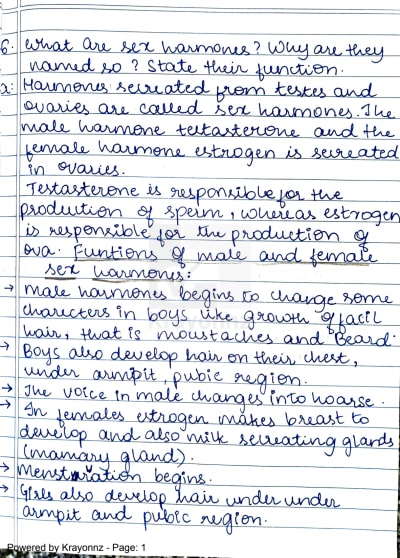 6. What are sex harmones? Why are they
named so? State their function.
a: Harmones secreated from testes and
ovaries are called sex harmones. The
male harmone testasterone and the
female harmone estrogen is secreated
in ovaries.
Testasterone is responsible for the
production of sperm, whereas estrogen
is responsible for the production of
ova. Funtions of male and female
sex harmones:
→ Male harmones begins to change some
charecters in boys like growth of facil
hair, that is moustaches and Beard.
→ Boys also develop hair on their chest,
under armpit, pubic region.
→ The voice in male changes into hoarse.
→ In females estrogen makes breast to
develop and also milk secreating glands
(mamary gland).
→ Menstruration begins.
→ Girls also develop hair under under
armpit and pubic region.
Powered by Krayonnz - Page: 1